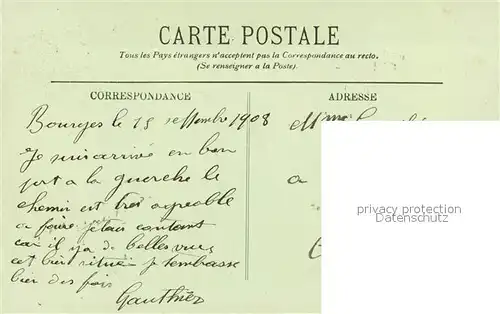 CARTE POSTALE
Tous les Pays étrangers n'acceptent pas la Correspondance au recto.
(Se renseigner a la Poste).
CORRESPONDANCE
ADRESSE
Bourges le 15 septembre 1908
Je suis arrivé en bon
port a la guerche le
chemin est tres agreable
a faire jetais contant
car il ya de belles vues
cet bien situé je tembrasse
bien des fois
Gauthier
Mme
a
privacy protection
Datenschutz